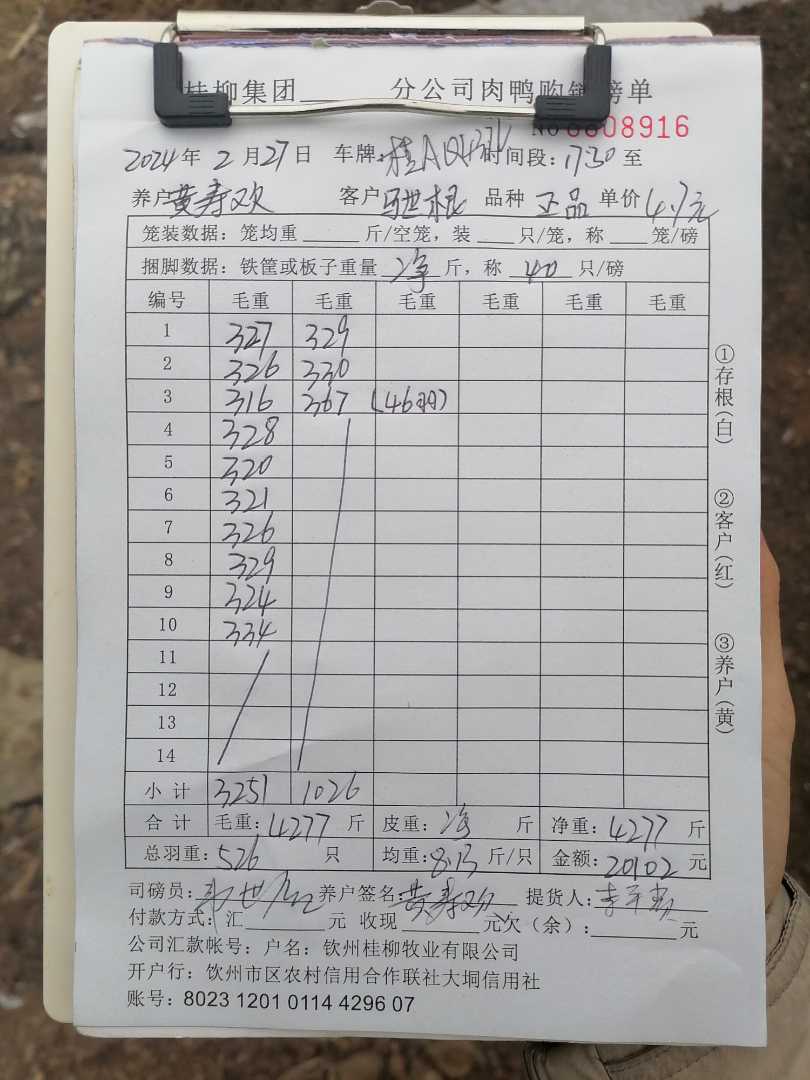 桂柳集团 分公司肉鸭购销磅单
NO 6608916
2024年2月27日 车牌:桂A 时间段:1730至
养户黄寿欢 客户 世根 品种 正品 单价4.7元
笼装数据:笼均重 斤/空笼,装 只/笼,称 笼/磅
捆脚数据:铁筐或板子重量 净 斤,称 40 只/磅
编号 毛重 毛重 毛重 毛重 毛重 毛重
1 327 329
2 326 330
3 316 367 (46羽)
4 328
5 320
6 321
7 326
8 329
9 324
10 334
11
12
13
14
小计 3251 1026
合计 毛重:4277斤 皮重:净 斤 净重:4277斤
总羽重:526只 均重:8.13斤/只 金额:20102元
司磅员: 养户签名:黄寿欢 提货人:
付款方式:汇 元 收现 元欠(余): 元
公司汇款帐号:户名:钦州桂柳牧业有限公司
开户行:钦州市区农村信用合作联社大垌信用社
账号:8023 1201 0114 4296 07
①存根(白)
②客户(红)
③养户(黄)